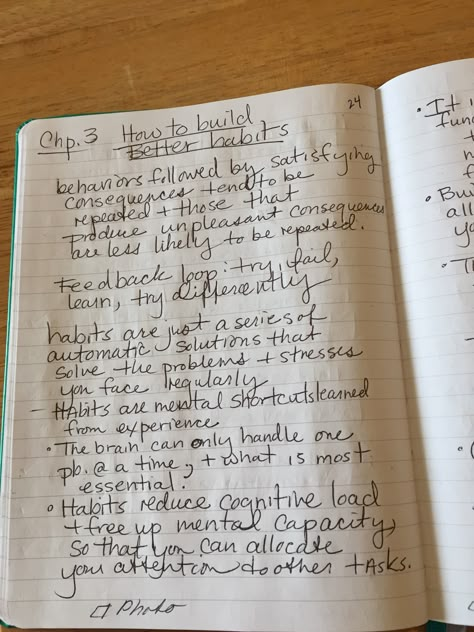 24
Chp. 3 How to build
Better habits
behaviors followed by satisfying
consequences tend to be
repeated + those that
produce unpleasant consequences
are less likely to be repeated.
Feedback loop: try, fail,
learn, try differently
habits are just a series of
automatic solutions that
solve the problems + stresses
you face regularly
- Habits are mental shortcuts learned
from experience
• The brain can only handle one
pb. @ a time, + what is most
essential.
• Habits reduce cognitive load
+ free up mental capacity,
so that you can allocate
you attention to other tasks.
Photo
• It
fun
• Bu
all
yo
• Th